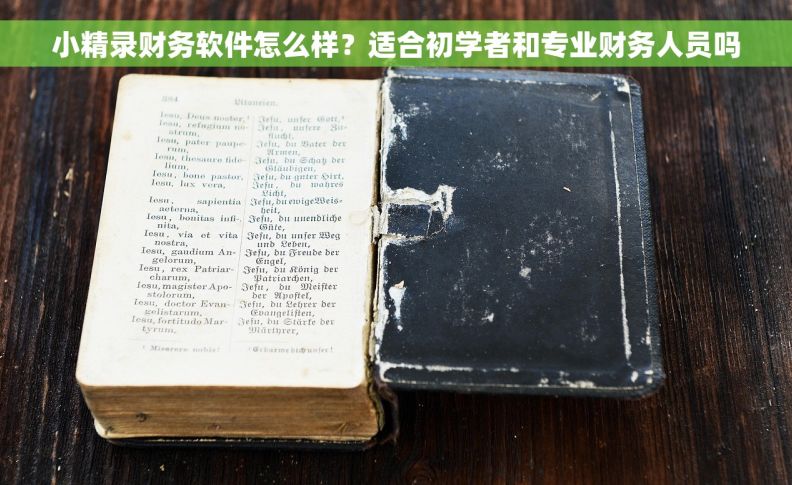 小精录财务软件怎么样？适合初学者和专业财务人员吗
384. Litaneien.
Iesu, Deus noster,¹
Iesu, refugium no-
strum,
Iesu, pater paupe-
rum,
Iesu, thesaure fide-
lium,
Iesu, bone pastor,
Iesu, lux vera,
Iesu, sapientia
aeterna,
Iesu, bonitas infi-
nita,
Iesu, via et vita
nostra,
Iesu, gaudium An-
gelorum,
Iesu, rex Patriar-
charum,
Iesu, magister Apo-
stolorum,
Iesu, doctor Evan-
gelistarum,
Iesu, fortitudo Mar-
tyrum,
¹ Miserere nobis!
Jesu, unser Gott,¹
Jesu, unsere Zu-
flucht,
Jesu, du Vater der
Armen,
Jesu, du Schatz der
Gläubigen,
Jesu, du guter Hirt,
Jesu, du wahres
Licht,
Jesu, du ewige Weis-
heit,
Jesu, du unendliche
Güte,
Jesu, du unser Weg
und Leben,
Jesu, du Freude der
Engel,
Jesu, du König der
Patriarchen,
Jesu, du Meister
der Apostel,
Jesu, du Lehrer der
Evangelisten,
Jesu, du Stärke der
Märtyrer,
¹ Erbarme dich unser!